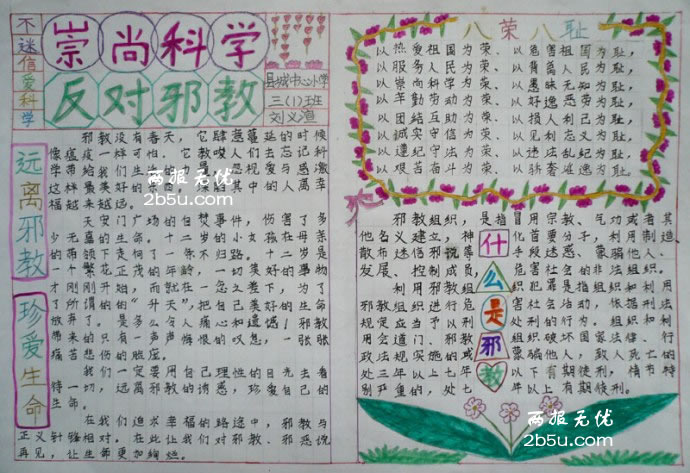 不迷信爱科学
崇尚科学
反对邪教
县城中心小学
三(1)班
远离邪教
珍爱生命
邪教没有春天，它肆意蔓延的时候
像瘟疫一样可怕。它教唆人们去忘记科
学带给我们生
这样最美好的东西，
福越来越远。
天安门广场的自焚事件，伤害了多
少无辜的生命。十二岁的小女孩在母亲
的带领下走向了一条不归路。十二岁是
一个繁花正茂的年龄，一切美好的事物
才刚刚开始，而就在一念之差下，为了
了所谓的“升天”，把自己美好的生命
放弃了。是多么令人痛心和遗憾！邪教
带来的只有一声声悔恨的叹息，一张张
痛苦悲伤的脸庞。
我们一定要用自己理性的目光去看
待一切，远离邪教的诱惑，珍爱自己的
生命。
在我们追求幸福的路途中，邪教与
正义针锋相对。在此让我们对邪教、邪恶说
再见，让生命更加绚烂。
八荣八耻
以热爱祖国为荣、以危害祖国为耻，
以服务人民为荣、以背离人民为耻，
以崇尚科学为荣、以愚昧无知为耻，
以辛勤劳动为荣、以好逸恶劳为耻，
以团结互助为荣、以损人利己为耻，
以诚实守信为荣、以见利忘义为耻，
以遵纪守法为荣、以违法乱纪为耻，
以艰苦奋斗为荣、以骄奢淫逸为耻。
什么是邪教
邪教组织，是指冒用宗教、气功或者其
他名义建立，神化首要分子，利用制造
散布迷信邪说等手段迷惑、蒙骗他人，
发展、控制成员，危害社会的非法组织。
利用邪教组织犯罪是指组织和利用
邪教组织进行危害社会治动，依据刑法
规定应当予以刑处刑的行为。组织和利
用会道门、邪教组织破坏国家法律、行
政法规实施的或蒙骗他人，致人死亡的
处三年以上七年以下有期徒刑，情节特
别严重的，处七年以上有期徒刑。
两报无忧
2b5u.com
两报无忧
2b5u.com